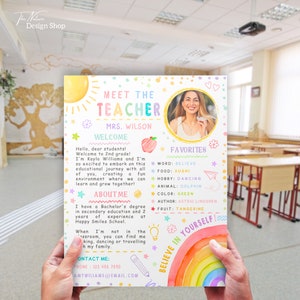 Design Shop
MEET THE
TEACHER
MRS. WILSON
WELCOME
Hello, dear students!
Welcome to 2nd grade!
I'm Kayla Williams and I'm
so excited to embark on this
educational journey with all
of you, creating a fun
environment where we can
learn and grow together!
ABOUT ME
I have a Bachelor's degree
in secondary education and 2
years of experience at
Happy Smiles School.
When I'm not in the
classroom, you can find me
dancing or traveling
my family.
CONTACT ME:
PHONE
FAVORITES
WORD: BELIEVE
FOOD: SUSHI
HOBBY: DANCING
ANIMAL: DOLPHIN
COLOR: GREEN
AUTHOR:
FRUIT:
BELIEVE IN YOURSELF